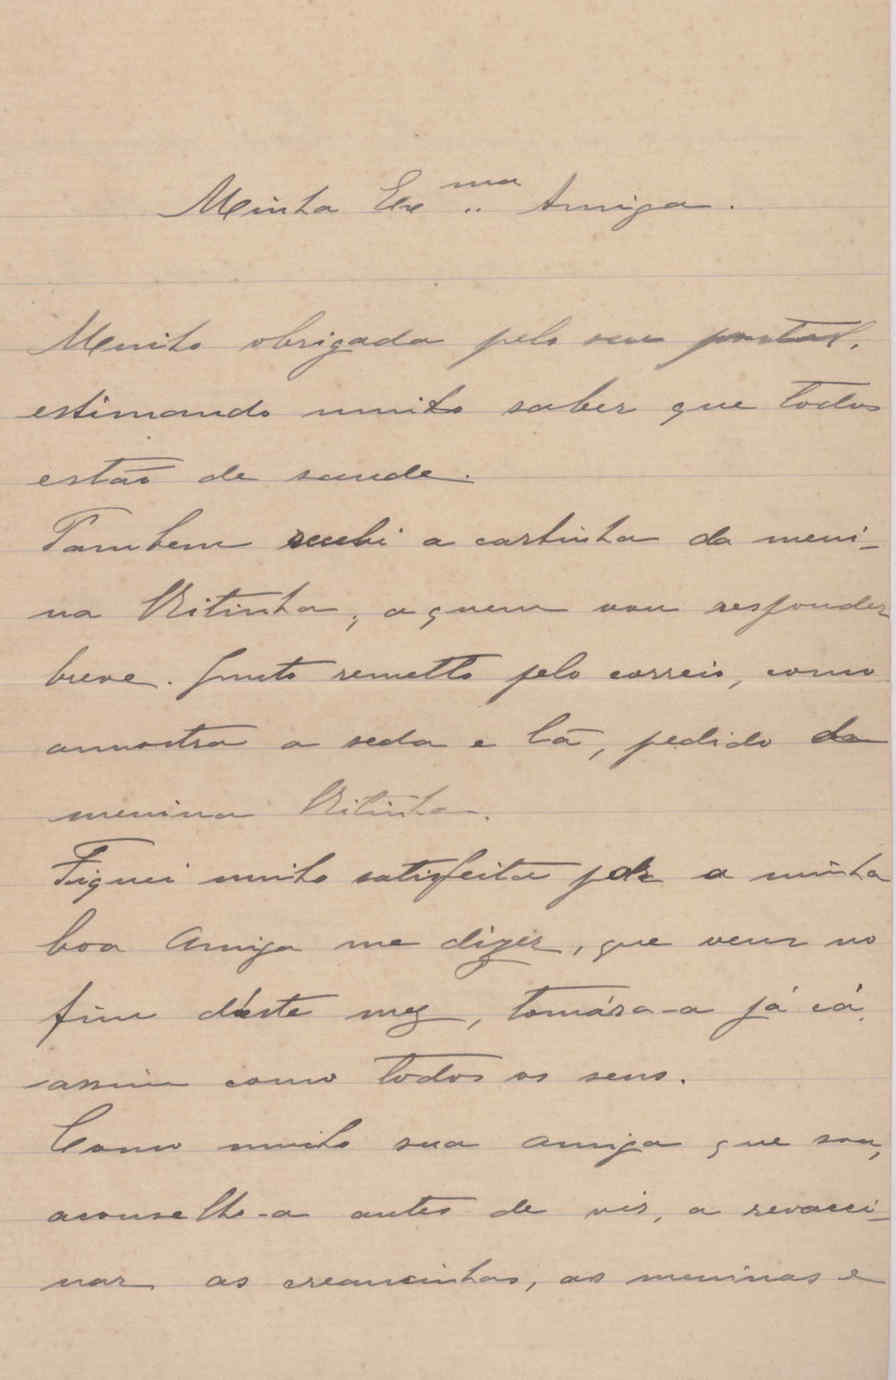 Minha Ex.ma Amiga.
Muito obrigada pelo seu postal,
estimando muito saber que todos
estão de saude.
Tambem recebi a cartinha da meni-
na Ritinha, a quem vou responder
breve. Junto remetto pelo correio, como
amostra a seda e lã, pedido da
menina Ritinha.
Fiquei muito satisfeita por a minha
boa Amiga me dizer, que vem no
fim dêste mez, tomára-a já cá,
assim como todos os seus.
Como muito sua amiga que sou,
aconselho-a antes de vir, a revacci-
nar as creancinhas, as meninas e